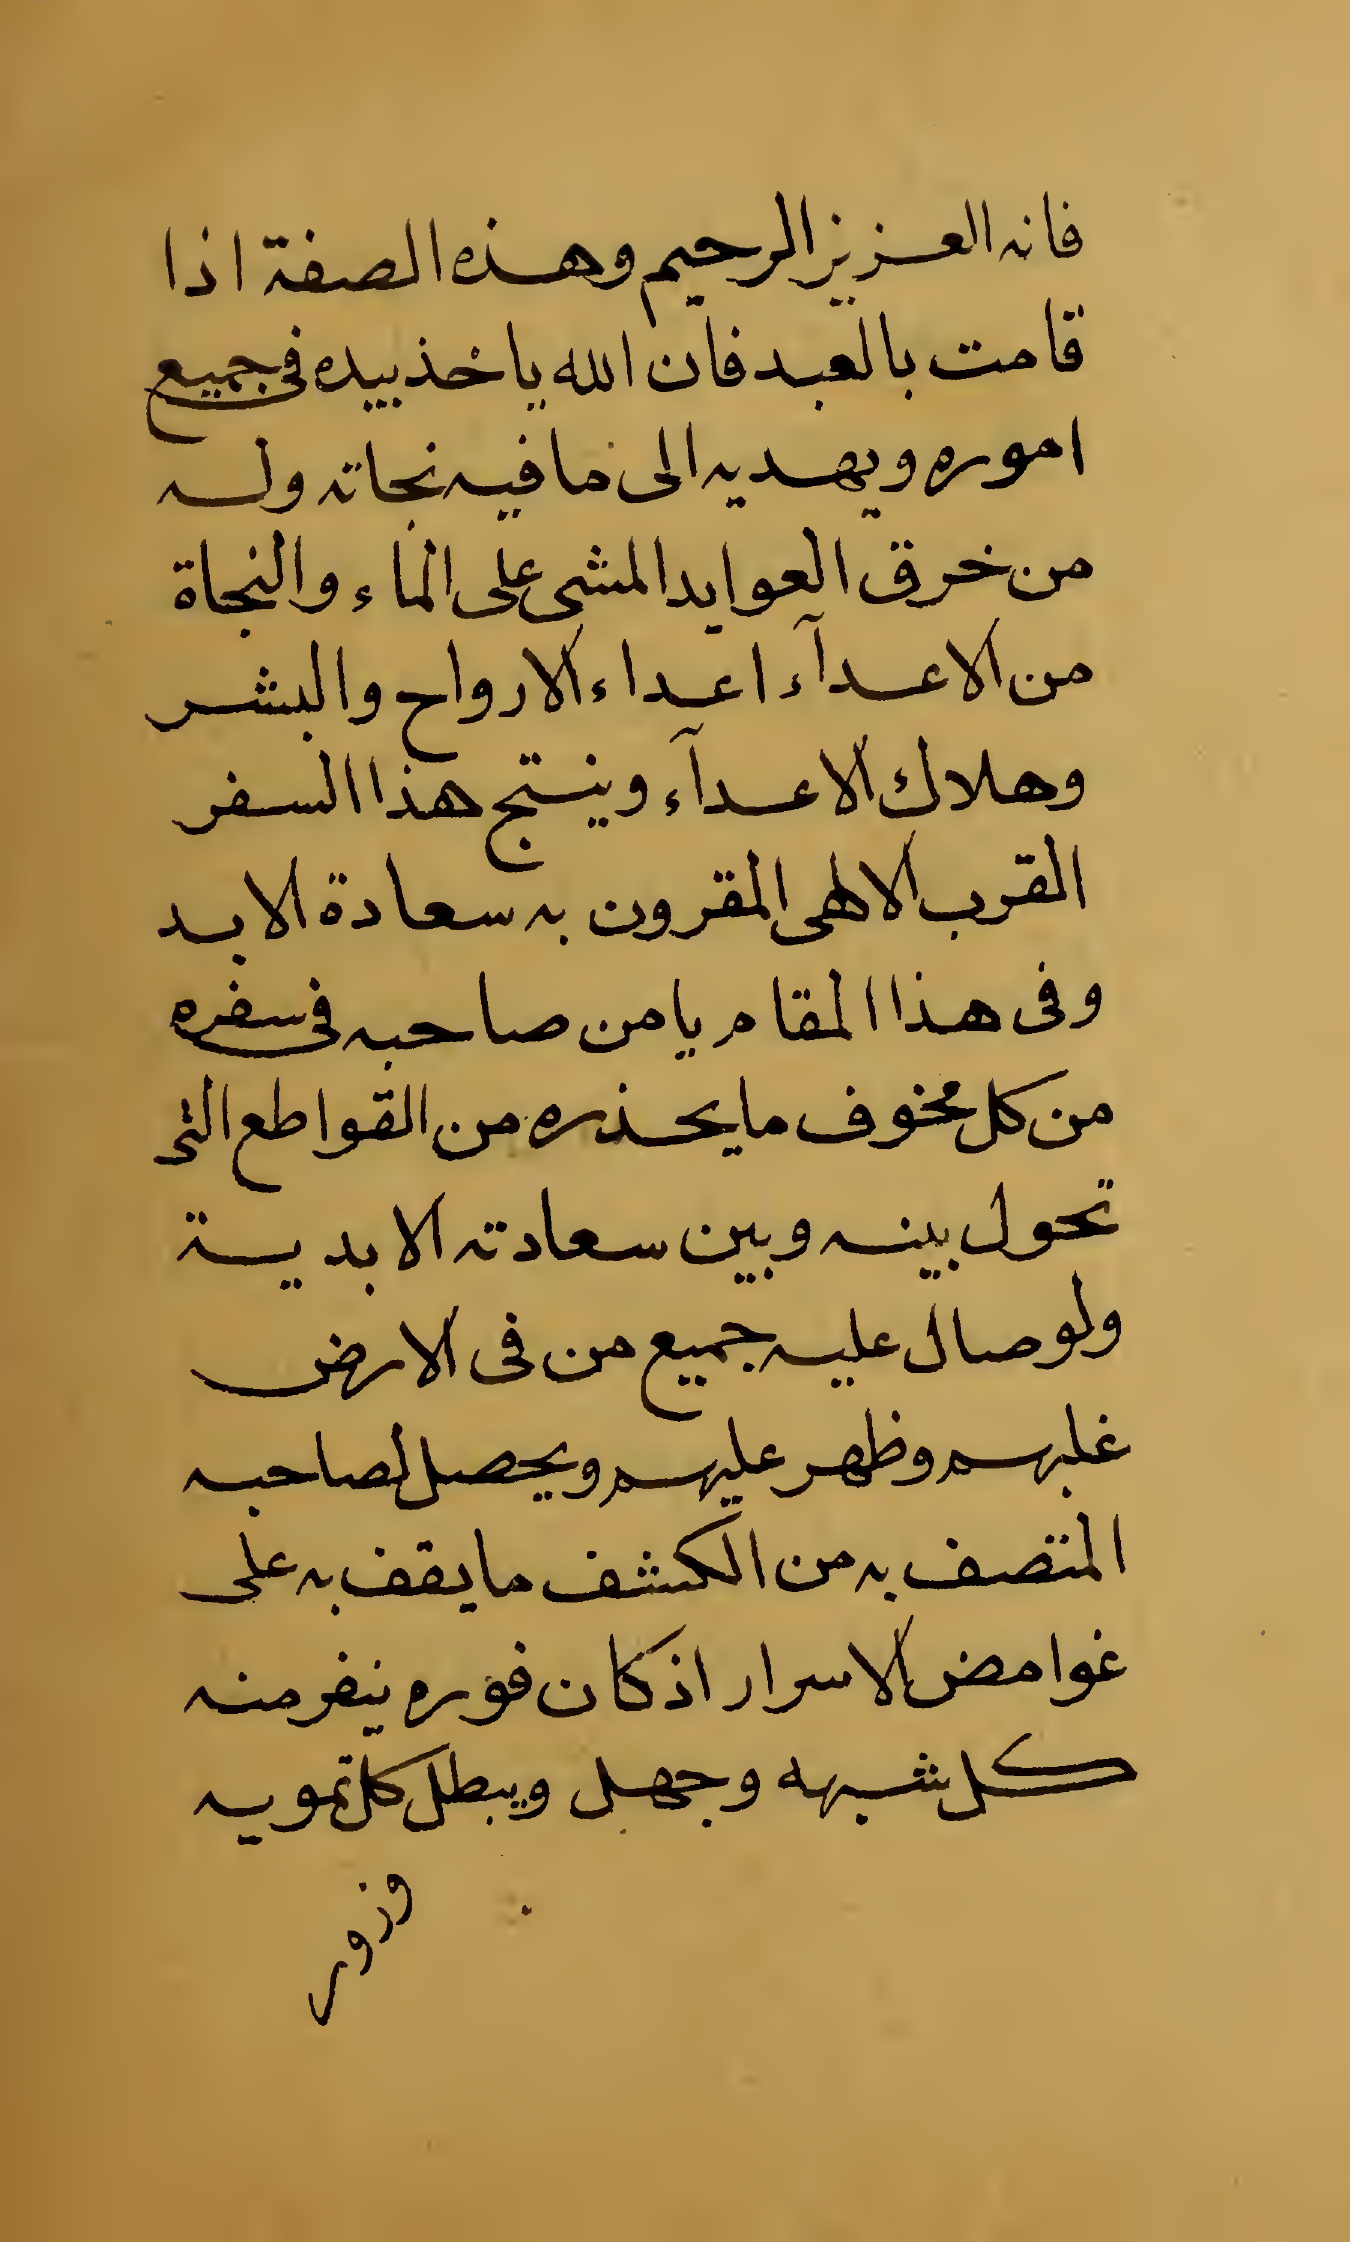 فانه العزيز الرحيم وهذه الصفة اذا
قامت بالعبد فان الله ياخذ بيده في جميع
اموره ويهديه الى ما فيه نجاته وله
من خرق العوايد المشى على الماء والنجاة
من الاعدآء اعداء الارواح والبشر
وهلاك الاعدآء وينتج هذا السفر
القرب الالهى المقرون به سعادة الابد
وفى هذا المقام يامن صاحبه في سفره
من كل مخوف ما يحذره من القواطع التى
تحول بينه وبين سعادته الابدية
ولو صال عليه جميع من فى الارض
غلبهم وظهر عليهم ويحصل لصاحبه
المتصف به من الكشف ما يقف به على
غوامض الاسرار اذ كان فوره ينفر منه
كل شبهه وجهل ويبطل كل تمويه
وزور